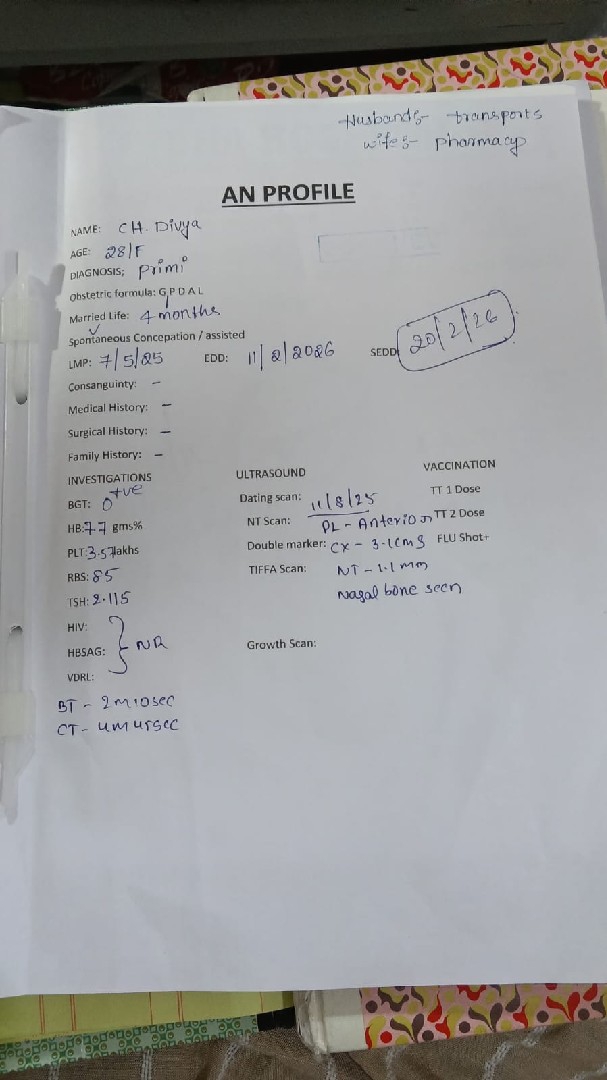 Husband:- transports
wife:- pharmacy
AN PROFILE
NAME: CH. Divya
AGE: 28/F
DIAGNOSIS; Primi
Obstetric formula: G P D A L
Married Life: 4 months
Spontaneous Concepation / assisted
LMP: 7/5/25 EDD: 11/2/2026 SEDD: 20/2/26
Consanguinty: –
Medical History: –
Surgical History: –
Family History: –
INVESTIGATIONS ULTRASOUND VACCINATION
BGT: O +ve Dating scan: 11/8/25 TT 1 Dose
HB: 7.7 gms% NT Scan: PL - Anterior TT 2 Dose
PLT: 3.57 lakhs Double marker: CX - 3.1cms FLU Shot+
RBS: 85 TIFFA Scan: NT - 1.1 mm
TSH: 2.115 Nasal bone seen
HIV:
HBSAG: NR Growth Scan:
VDRL:
BT - 2m10sec
CT - 4m45sec